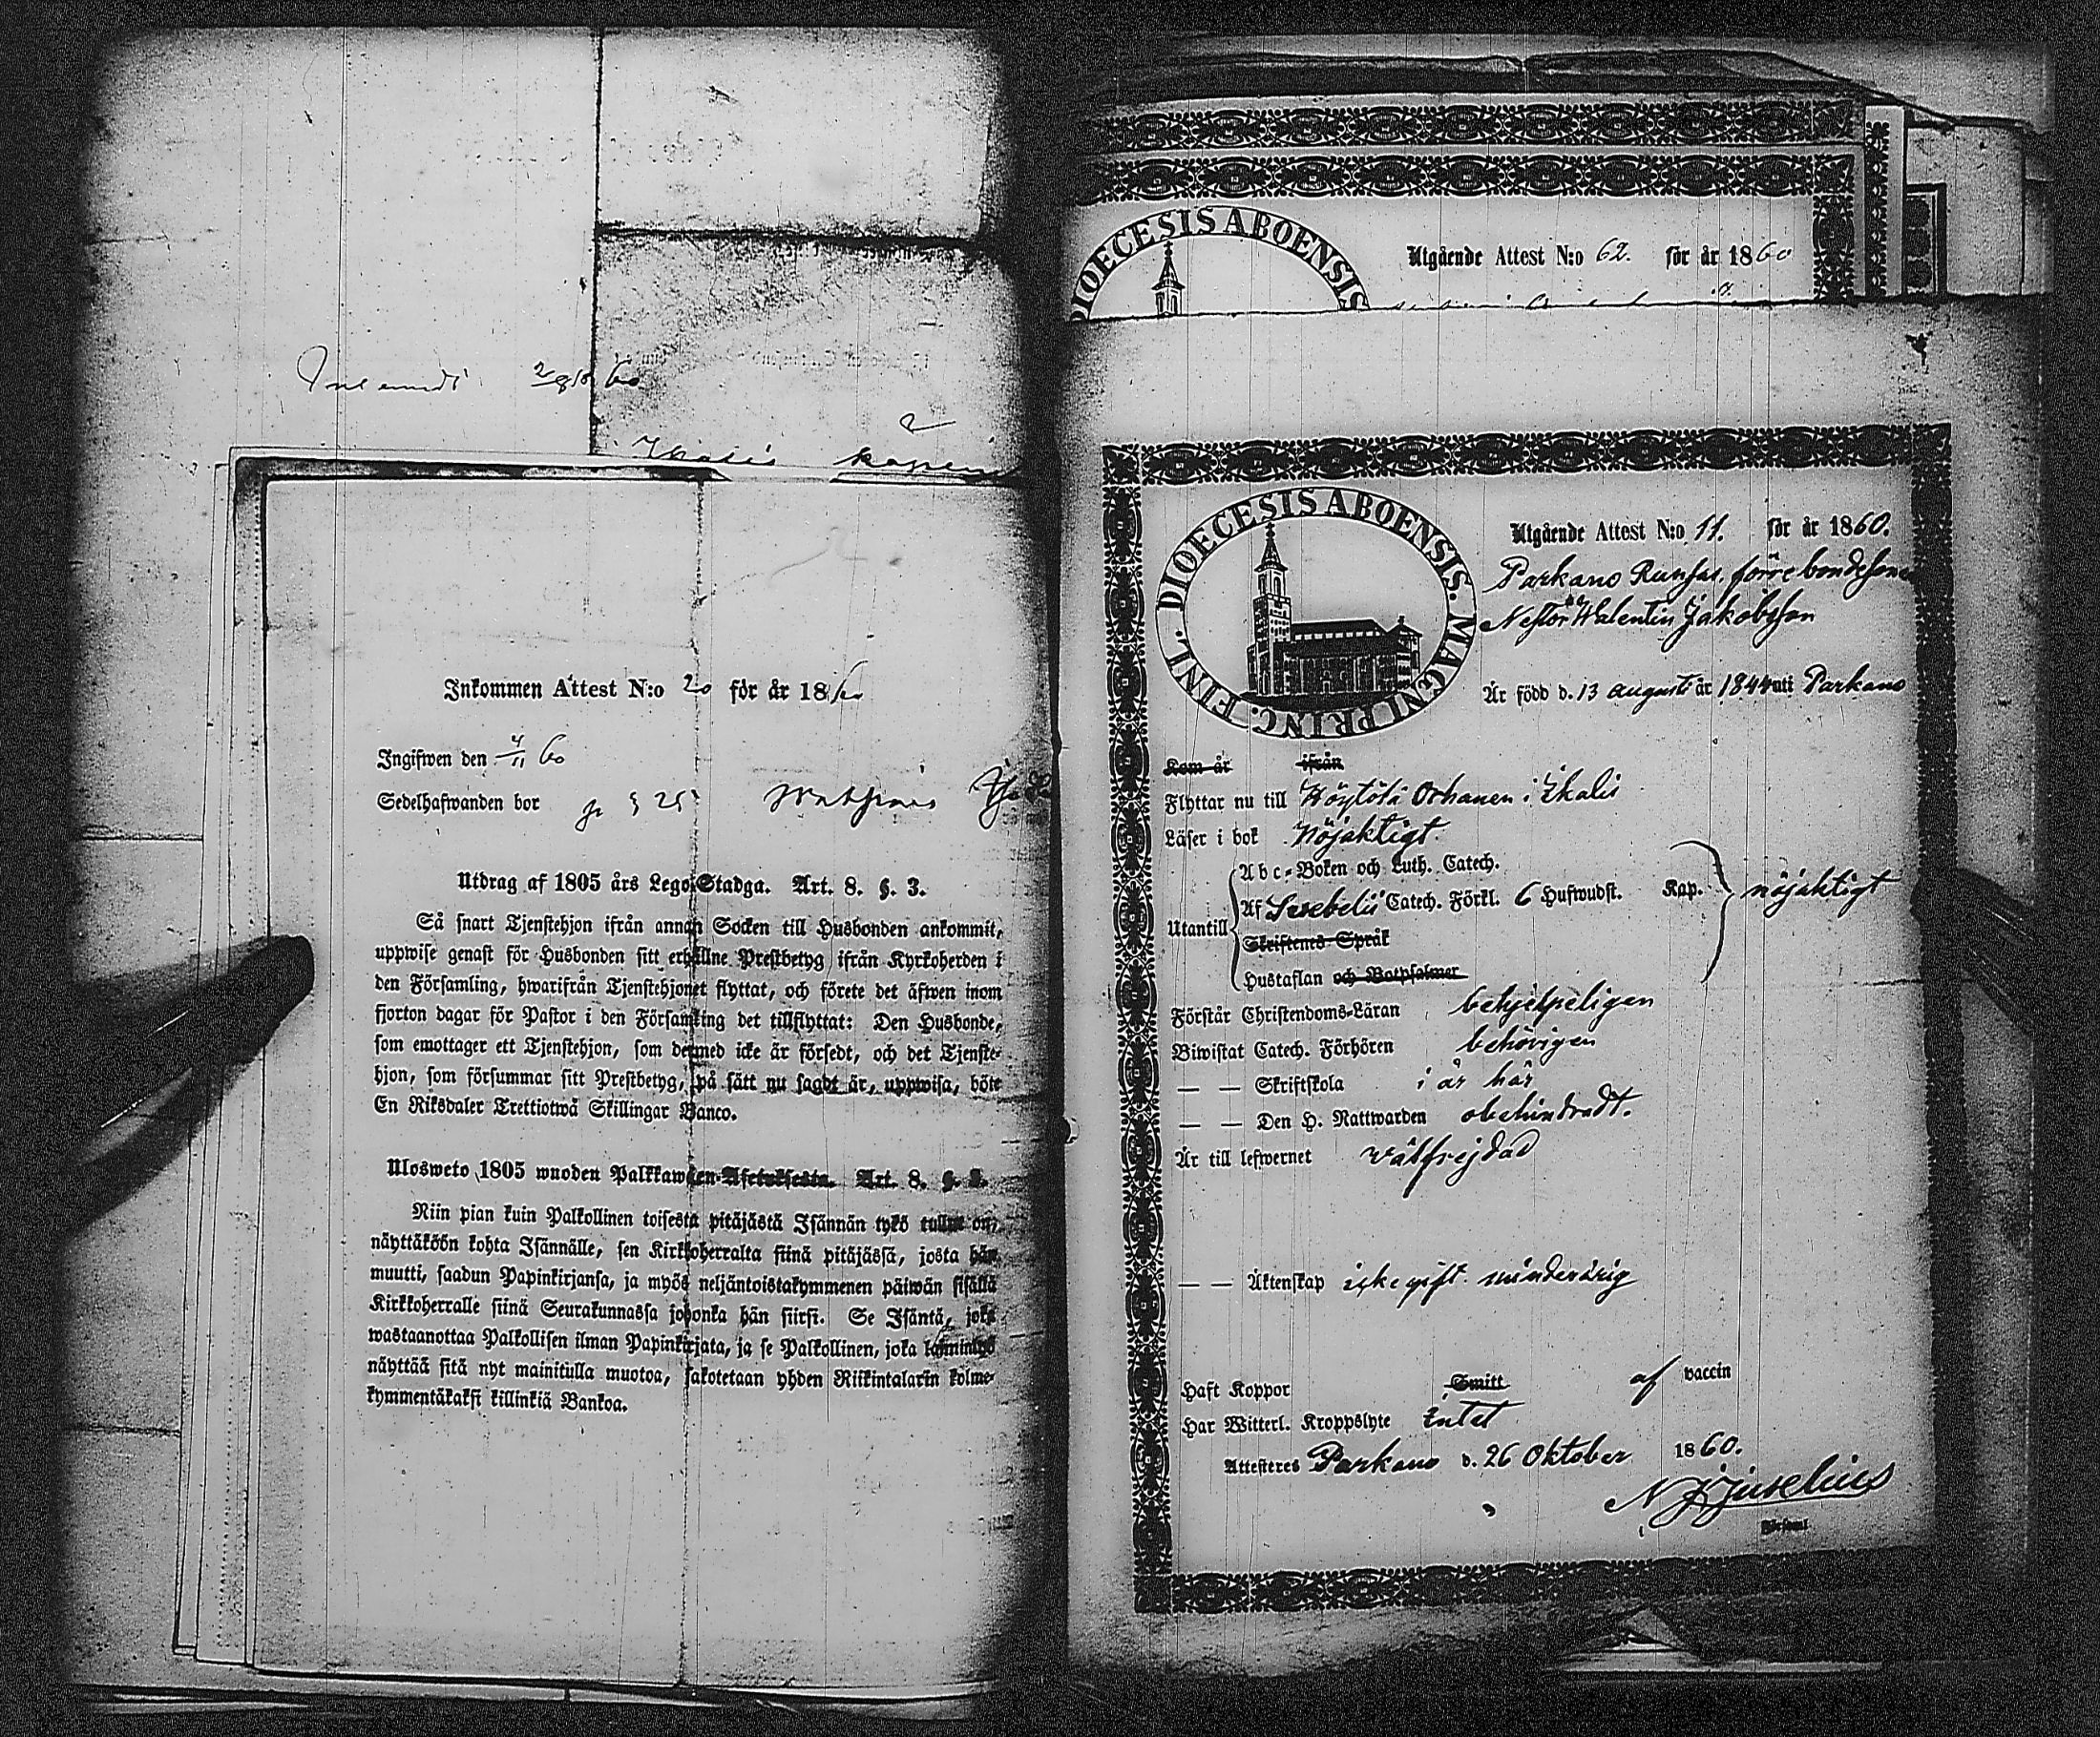 Inkommen Attest N:o 20 för år 1860
Ingifwen den 4/11 60
Sedelhafwanden bor
Utdrag af 1805 års Lego-Stadga. Art. 8. §. 3.
Så snart Tjenstehjon ifrån annan Socken till Husbonden ankommit,
uppwise genast för Husbonden sitt erhållne Prestbetyg ifrån Kyrkoherden i
den Församling, hwarifrån Tjenstehjonet flyttat, och förete det äfwen inom
fjorton dagar för Pastor i den Församling det tillflyttat: Den Husbonde,
som emottager ett Tjenstehjon, som dermed icke är försedt, och det Tjenste-
hjon, som försummar sitt Prestbetyg, på sätt nu sagdt är, uppwisa, böte
En Riksdaler Trettiotwå Skillingar Banco.
Ulosweto 1805 wuoden Palkkawäen-Asetuksesta. Art. 8. §. 3.
Niin pian kuin Palkollinen toisesta pitäjästä Isännän tykö tullut on,
näyttäköön kohta Isännälle, sen Kirkkoherralta siinä pitäjässä, josta hän
muutti, saadun Papinkirjansa, ja myös neljäntoistakymmenen päiwän sisällä
Kirkkoherralle siinä Seurakunnassa johonka hän siirsi. Se Isäntä, joka
wastaanottaa Palkollisen ilman Papinkirjata, ja se Palkollinen, joka laiminlyö
näyttää sitä nyt mainitulla muotoa, sakotetaan yhden Riikintalarin kolme-
kymmentäkaksi killinkiä Bankoa.
DIOECESIS ABOENSIS
Utgående Attest N:o 62. för år 1860
DIOECESIS ABOENSIS. MAGNI PRINC. FINL.
Utgående Attest N:o 11. för år 1860.
Parkano förre bondesonen
Nestor Walentin Jakobsson
Är född d. 13 augusti år 1844 uti Parkano
Kom år ifrån
Flyttar nu till Höytölä Orhanen i Ikalis
Läser i bok Nöjaktigt.
Utantill
Abc-Boken och Luth. Catech.
Af Catech. Förkl. 6 Hufwudst. Kap. nöjaktigt
Skriftenes Språk
Hustaflan och Botpsalmer
Förstår Christendoms-Läran behjelpeligen
Biwistat Catech. Förhören behörigen
— — Skriftskola i år här
— — Den H. Nattwarden obehindradt.
Är till lefwernet wälfrejdad
— — Äktenskap icke gift. minderårig
Haft Koppor Smitt af vaccin
Har Witterl. Kroppslyte Intet
Attesteres Parkano d. 26 Oktober 1860.
Juselius